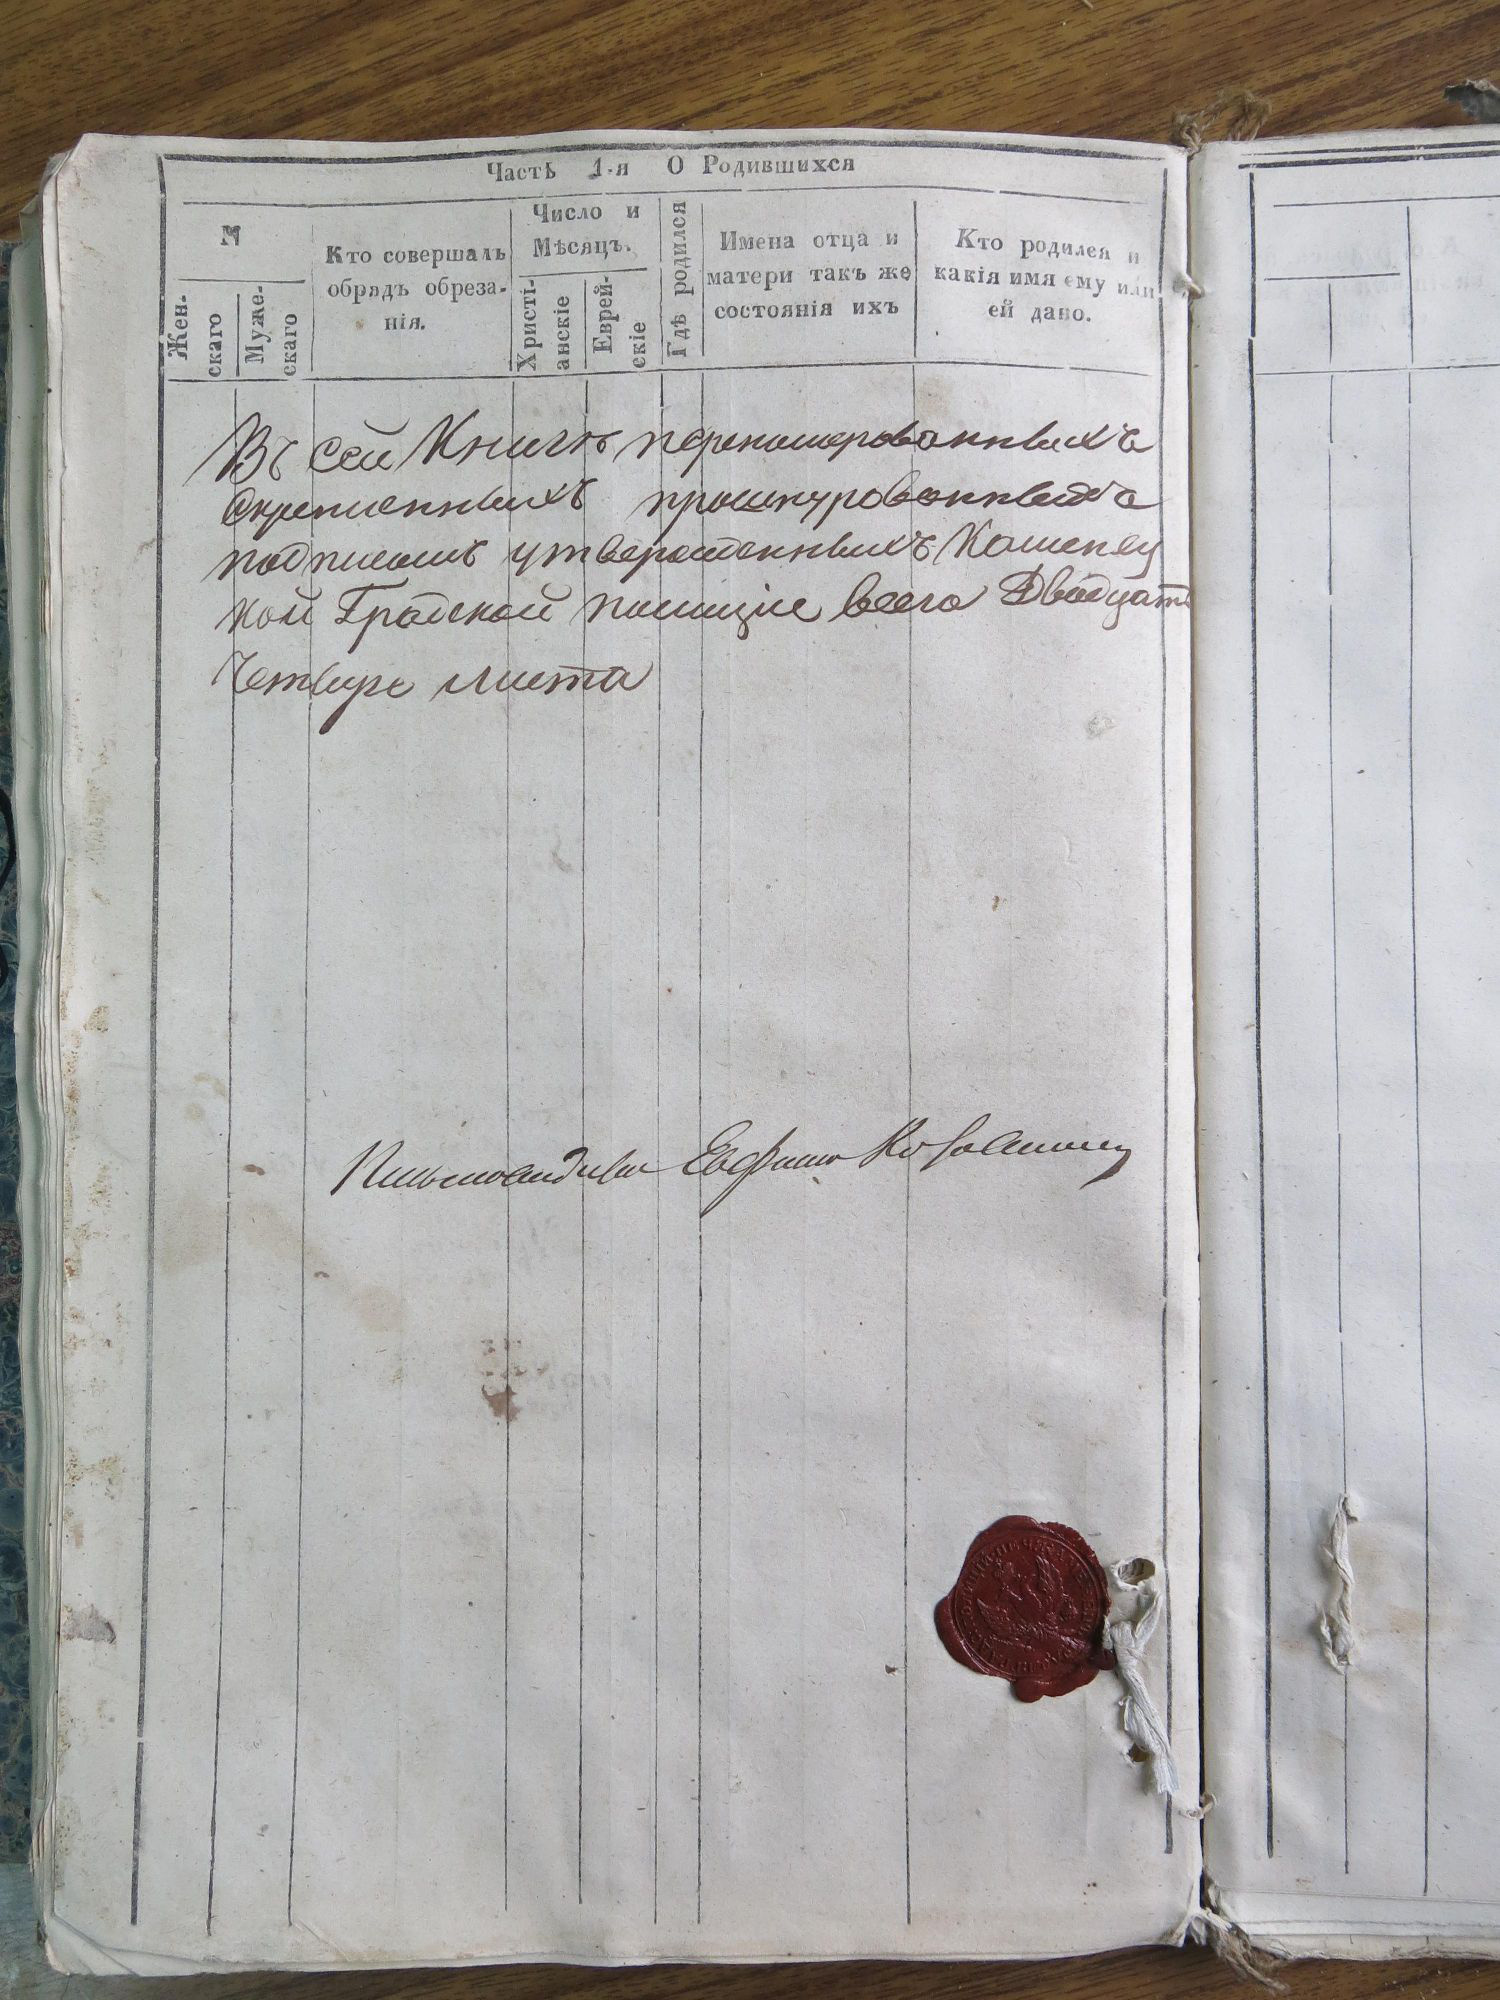 Часть 1-я О Родившихся
№
Жен-
скаго
Муже-
скаго
Кто совершалъ
обрядъ обреза-
нія.
Число и
Мѣсяцъ.
Христі-
анскіе
Еврей-
скіе
Гдѣ родился
Имена отца и
матери такъ же
состоянія ихъ
Кто родился и
какія имя ему или
ей дано.
Въ сей Книгѣ перенумерованныхъ
Скрепленныхъ прошнурованныхъ
подписомъ утвержденныхъ
кой Градской полиціи всего Двадцать
Четыре листа
Письмоводитель